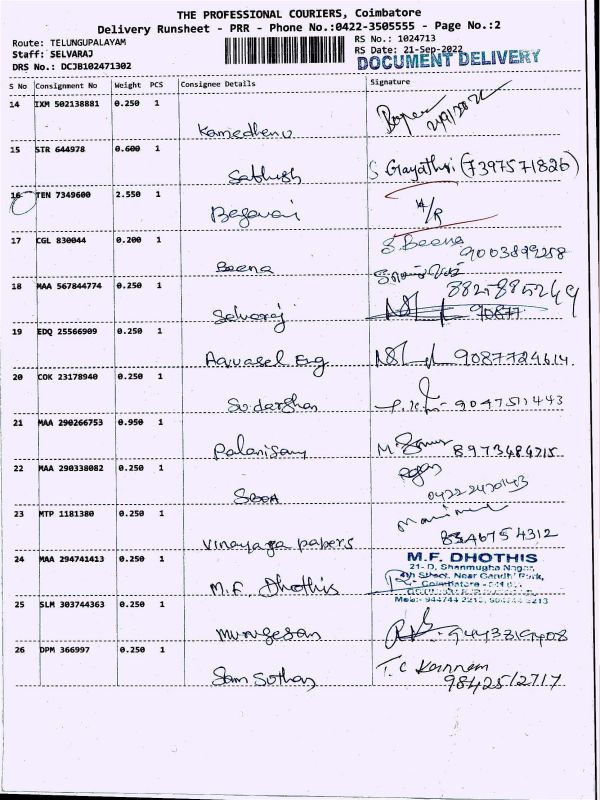 THE PROFESSIONAL COURIERS, Coimbatore
Delivery Runsheet - PRR - Phone No.:0422-3505555 - Page No.:2
Route: TELUNGUPALAYAM
RS No.: 1024713
Staff: SELVARAJ
RS Date: 21-Sep-2022
DRS No.: DCJB102471302
DOCUMENT DELIVERY
S No Consignment No Weight PCS Consignee Details Signature
14 IXM 502138881 0.250 1
Kamedhenu
15 STR 644978 0.600 1
Sathish S Gayathri (7397571826)
16 TEN 7349600 2.550 1
17 CGL 830044 0.200 1
S. Beena
Beena 9003899258
18 MAA 567844774 0.250 1
8825885249
Selvaraj 90877
19 EDQ 25566909 0.250 1
Aquasel Eng 9087724614
20 COK 23178940 0.250 1
Sudarshan 9047511443
21 MAA 290266753 0.950 1
Palanisamy 8973484215
22 MAA 290338082 0.250 1
0422 2470143
23 MTP 1181380 0.250 1
Vinayaga papers 8346754312
24 MAA 294741413 0.250 1
M.F. DHOTHIS
21- D, Shanmugha Nagar,
4th Street, Near Gandhi Park,
M.F. Dhothis
25 SLM 303744363 0.250 1
Murugesan
26 DPM 366997 0.250 1
T. C Kannan
9842512717